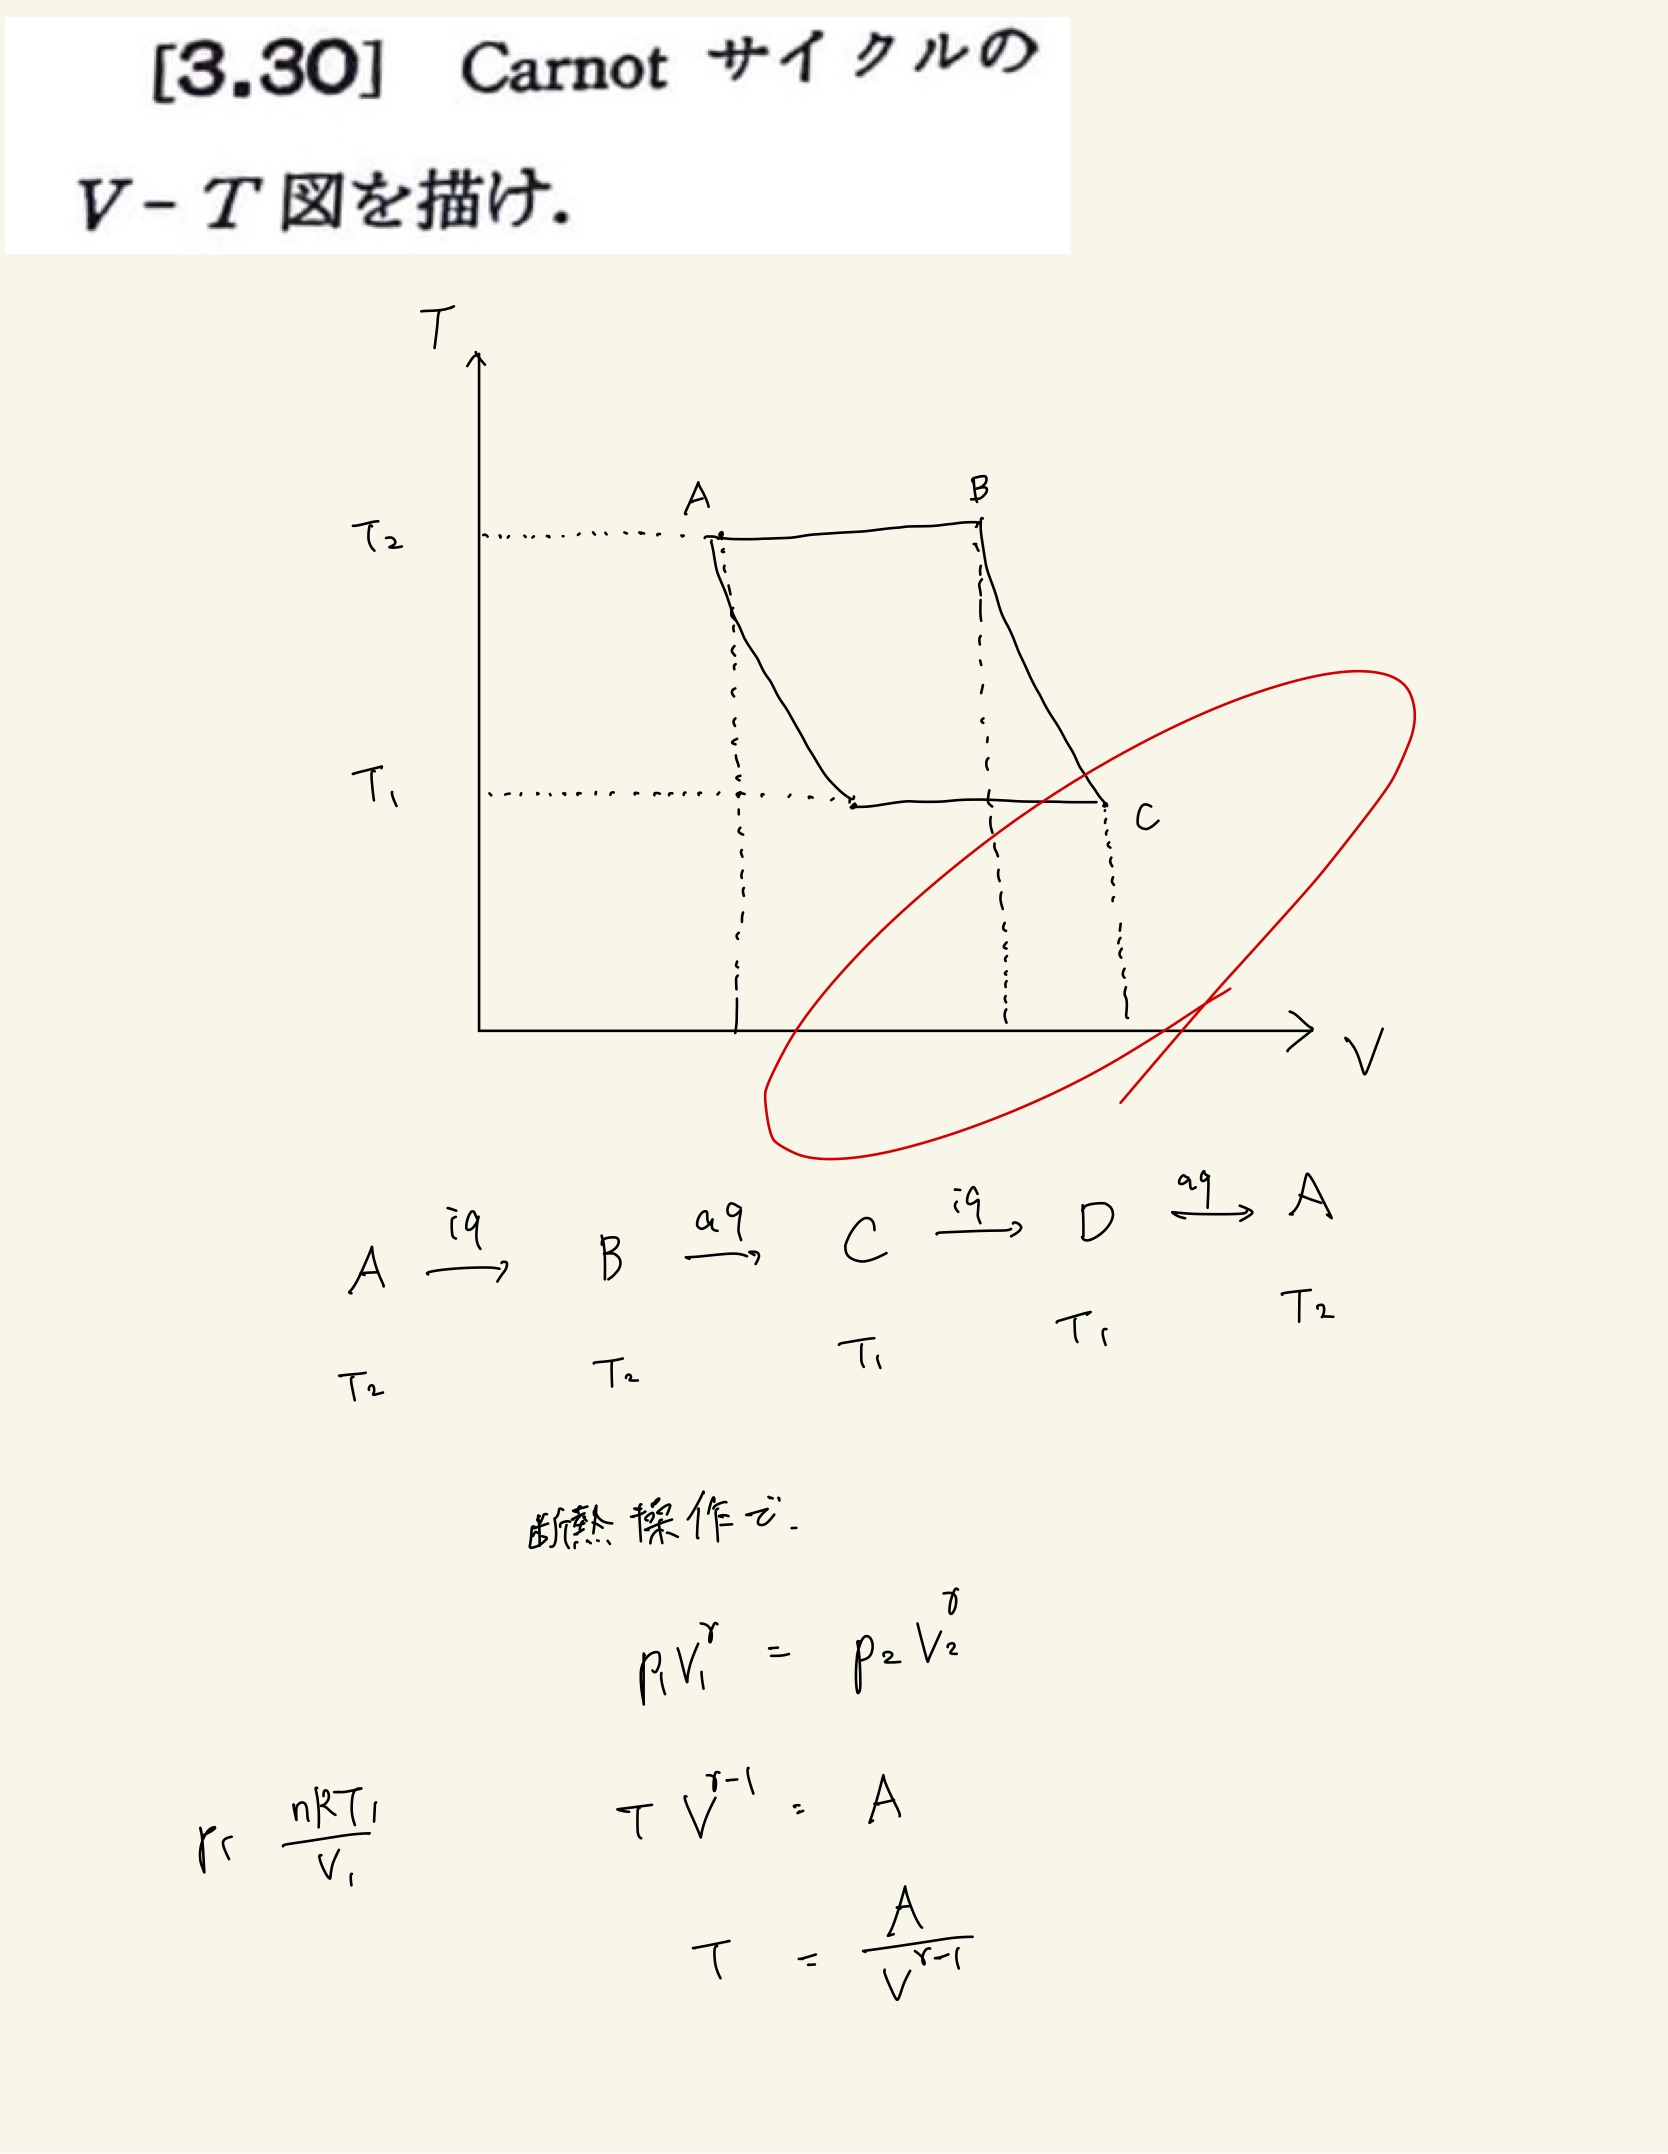 [3.30] Carnot サイクルの
V-T 図を描け.
T
A B
T₂
T₁
C
V
A iq→ B aq→ C iq→ D aq→ A
T₂ T₂ T₁ T₁ T₂
断熱操作で.
p₁V₁^γ = p₂V₂^γ
nRT₁/V₁ TV^γ-1 = A
T = A/V^γ-1